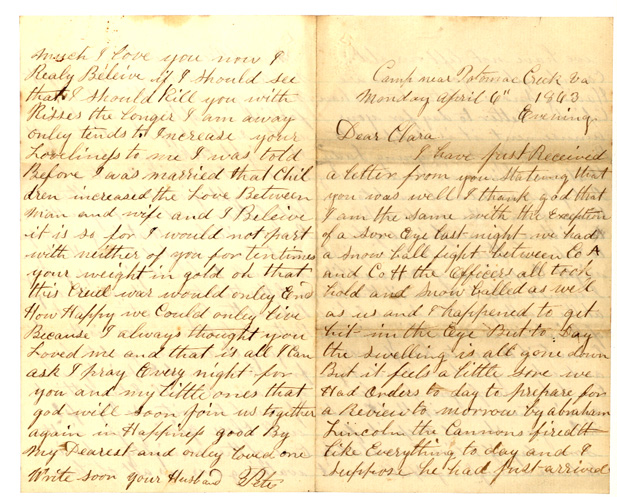 Camp near Potomac Creek Va
Monday April 6" 1863
Evening
Dear Clara
I have just Received
a letter from you stateing that
you was well I thank god that
I am the same with the Exception
of a sore Eye last night we had
a Snow ball fight between Co A
and Co H the officers all took
hold and snow balled as well
as us and I happened to get
hit in the Eye But to Day
the swelling is all gone down
But it feels a little sore we
Had Orders to day to prepare for
a Review to morrow by abraham
Lincoln the Cannons fired
like Everything to day and I
suppose he had just arrived
much I love you now I
Realy Beleive if I should see
that I should kill you with
Kisses the longer I am away
onley tends to Increase your
Loveliness to me I was told
Before I was married that Chil
dren increased the Love Between
man and wife and I Beleive
it is so for I would not part
with neither of you for ten times
your weight in gold oh that
this Cruel war would onley End
How Happy we Could onley live
Because I always thought you
Loved me and that is all I Can
ask I pray Every night for
you and my little ones that
god will soon join us together
again in Happiness good By
My Dearest and onley loved one
Write soon your Husband Pete